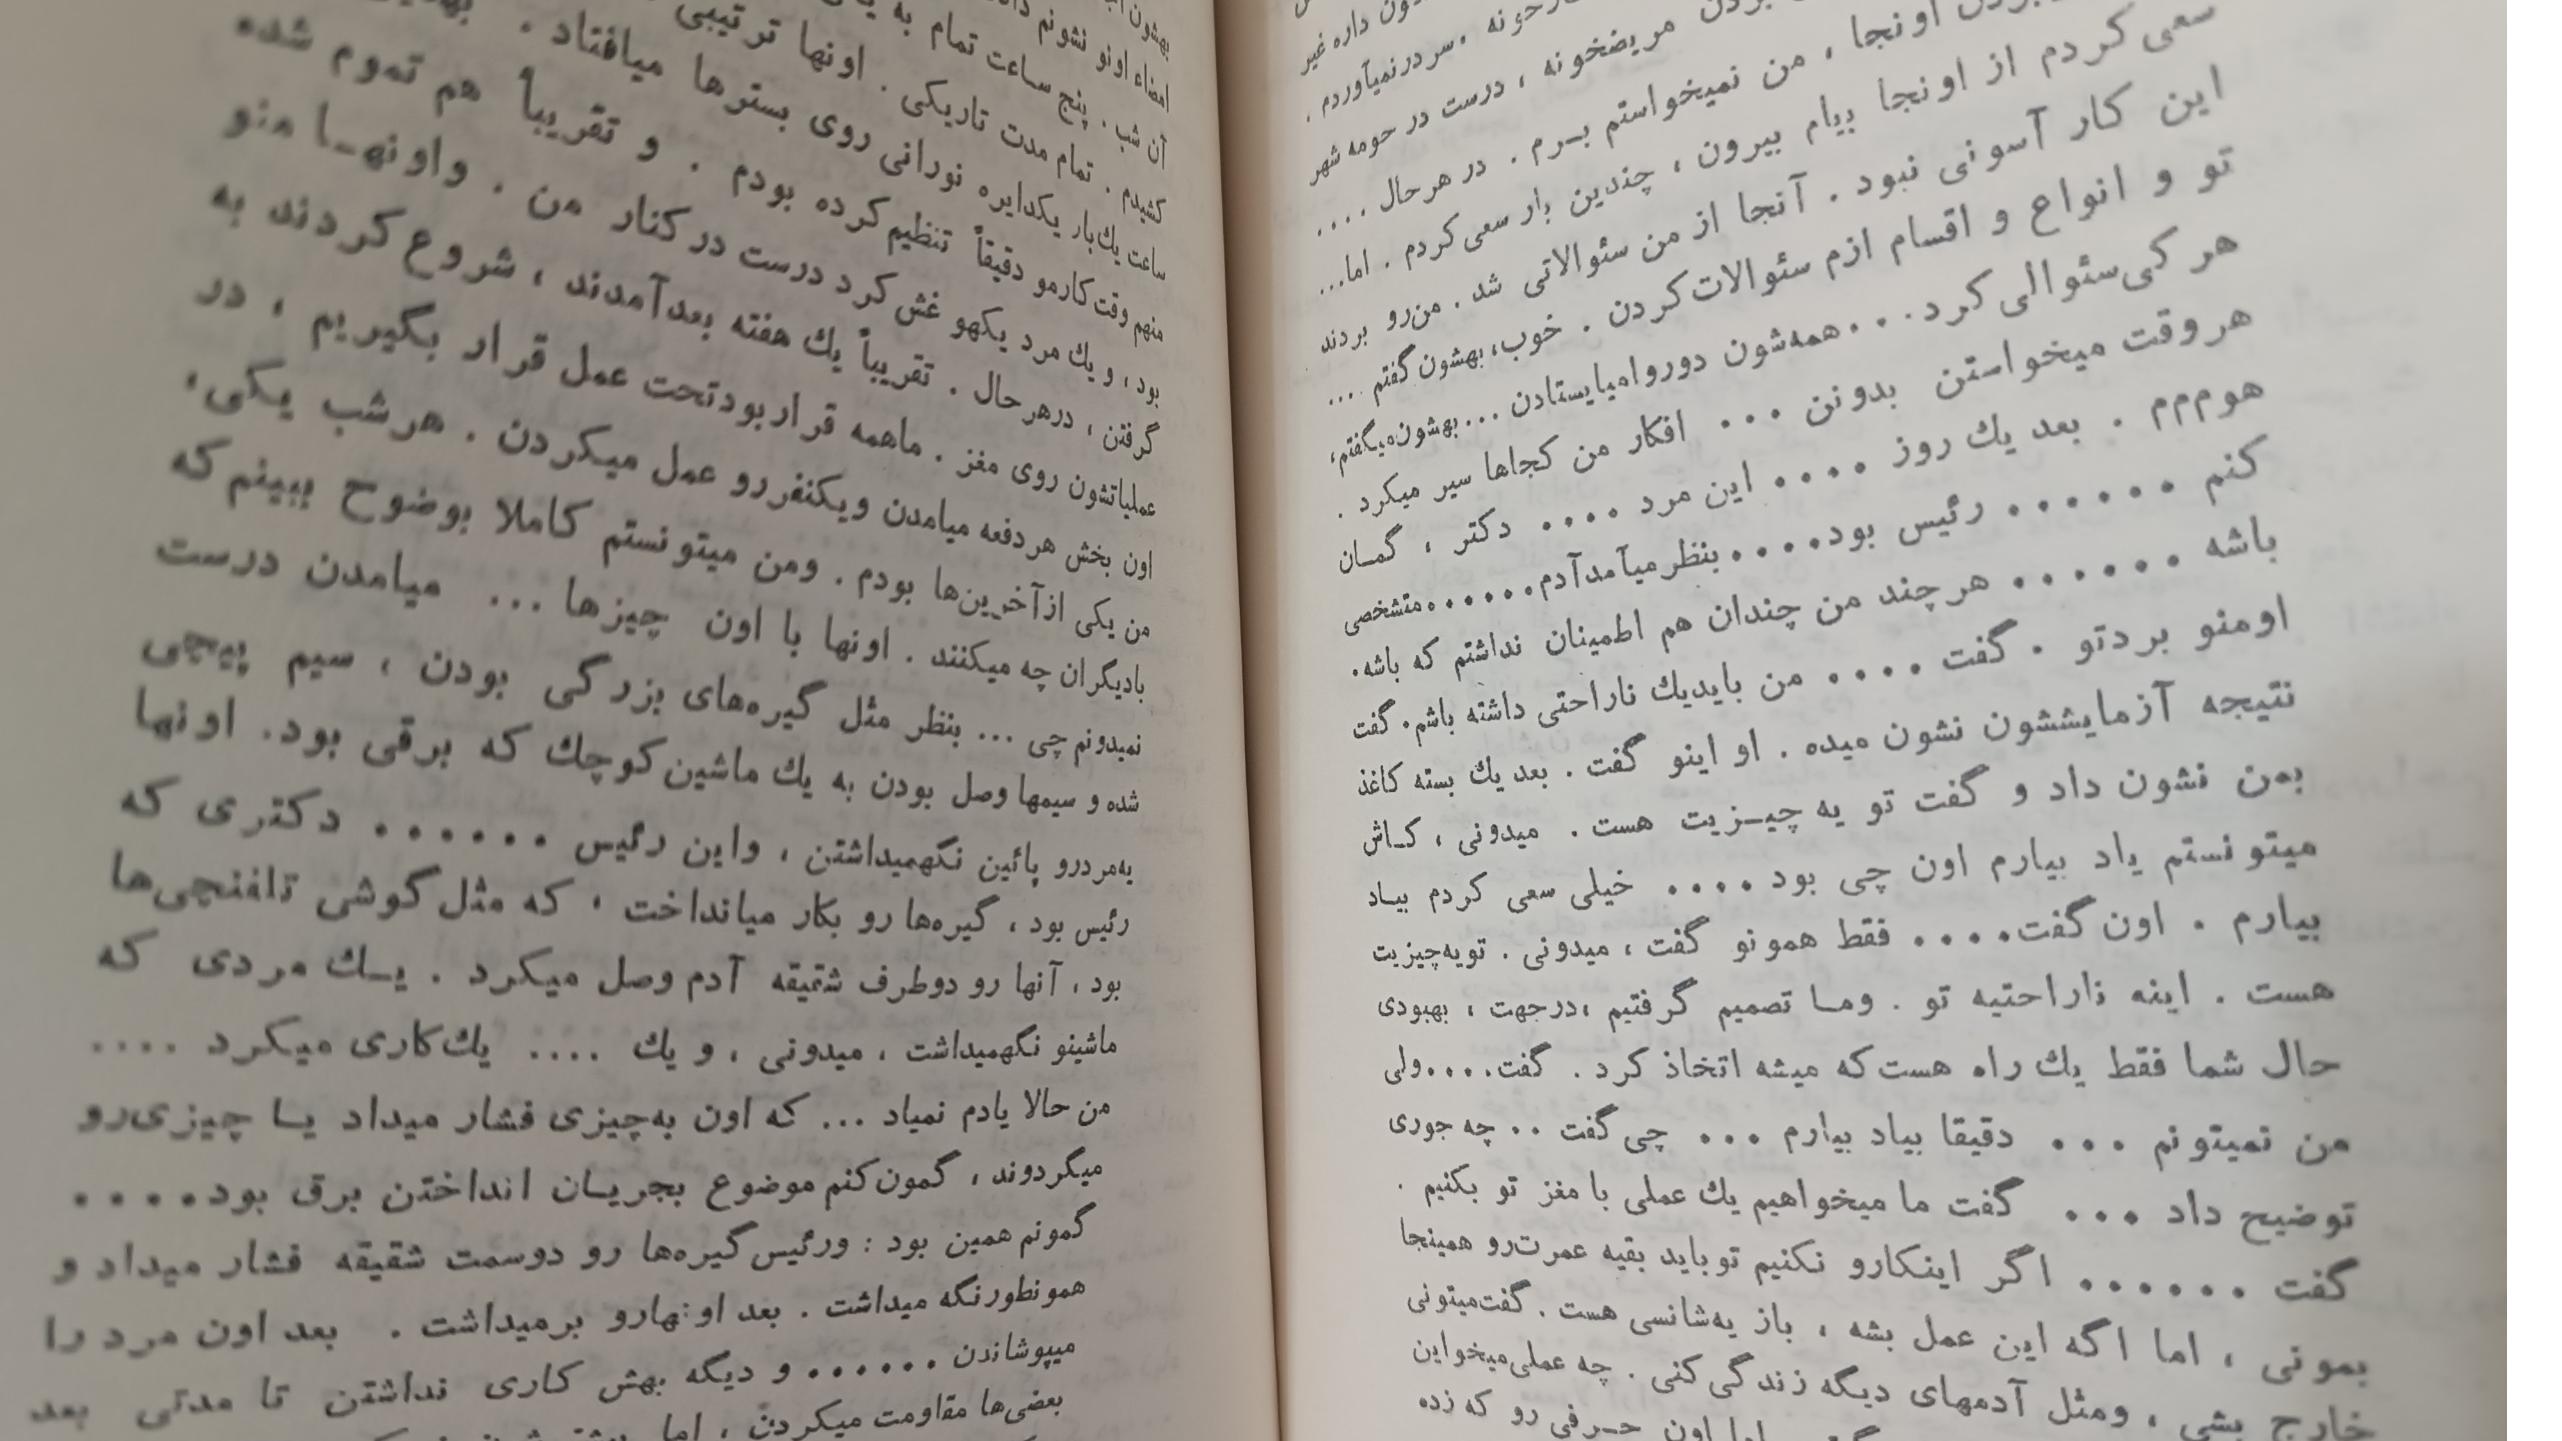 ون داره غیر
سردرنمیآوردم .
بردن مریضخونه ، درست در حومه شهر
اونجا ، من نمیخواستم بـرم . در هرحال ....
سعی کردم از اونجا بیام بیرون ، چندین بار سعی کردم . اما...
این کار آسونی نبود . آنجا از من سئوالاتی شد . من‌رو بردند
تو و انواع و اقسام ازم سئوالات‌کردن . خوب، بهشون گفتم ....
هر کی‌سئوالی کرد... همه‌شون دوروامیایستادن ... بهشون‌میگفتم،
هروقت میخواستن بدونن ... افکار من کجاها سیر میکرد .
هوم‌م‌م . بعد یك روز .... این مرد .... دکتر ، گمـان
کنم ...... رئیس بود.... بنظرمیآمدآدم......متشخصی
باشه ...... هرچند من چندان هم اطمینان نداشتم که باشه.
اومنو بردتو . گفت .... من بایدیك ناراحتی داشته باشم. گفت
نتیجه آزمایششون نشون میده . او اینو گفت . بعد یك بسته کاغذ
بمن نشون داد و گفت تو یه چیـزیت هست . میدونی ، کـاش
میتونستم یاد بیارم اون چی بود .... خیلی سعی کردم بیـاد
بیارم . اون گفت.... فقط همونو گفت ، میدونی . تویه‌چیزیت
هست . اینه ناراحتیه تو . ومـا تصمیم گرفتیم ،درجهت ، بهبودی
حال شما فقط یك راه هست‌که میشه اتخاذ کرد . گفت....ولی
من نمیتونم ... دقیقا بیاد بیارم ... چی گفت .. چه جوری
توضیح داد ... گفت ما میخواهیم یك عملی با مغز تو بکنیم .
گفت ...... اگر اینکارو نکنیم توباید بقیه عمرت‌رو همینجا
بمونی ، اما اگه این عمل بشه ، باز یه‌شانسی هست . گفت‌میتونی
خارج بشی ، ومثل آدمهای دیگه زندگی‌کنی . چه عملی‌میخواین
اون حـرفی رو که زده
بهشون
امضاء اونو نشونم
آن شب . پنج ساعت تمام به
کشیدم . تمام مدت تاریکی . اونها ترتیبی
ساعت یك‌بار یکدایره نورانی روی بسترها میافتاد .
منهم وقت‌کارمو دقیقاً تنظیم‌کرده بودم . و تقریباً هم تموم شده
بود ، و یك مرد یکهو غش‌کرد درست درکنار من . واونهـا منو
گرفتن ، درهرحال . تقریباً یك هفته بعدآمدند ، شروع کردند به
عملیاتشون روی مغز . ماهمه قراربودتحت عمل قرار بگیریم ، در
اون بخش هردفعه میامدن ویکنفررو عمل میکردن . هرشب یکی،
من یکی ازآخرین‌ها بودم . ومن میتونستم کاملا بوضوح ببینم‌که
بادیگران چه میکنند . اونها با اون چیزها ... میامدن درست
نمیدونم چی ... بنظر مثل گیره‌های بزرگی بودن ، سیم پیچی
شده و سیمها وصل بودن به یك ماشین‌کوچك که برقی بود. اونها
یه‌مردرو پائین نگهمیداشتن ، واین رئیس ...... دکتری که
رئیس بود ، گیره‌ها رو بکار میانداخت ، که مثل‌گوشی تلفنچی‌ها
بود ، آنها رو دوطرف شقیقه آدم وصل میکرد . یـك مردی که
ماشینو نگهمیداشت ، میدونی ، و یك .... یك‌کاری میکرد ....
من حالا یادم نمیاد ... که اون به‌چیزی فشار میداد یـا چیزی‌رو
میگردوند ، گمون‌کنم موضوع بجریـان انداختن برق بود....
گمونم همین بود : ورئیس‌گیره‌ها رو دوسمت شقیقه فشار میداد و
همونطورنگه میداشت . بعد اونهارو برمیداشت . بعد اون مرد را
میپوشاندن ...... و دیگه بهش کاری نداشتن تا مدتی بعد
بعضی‌ها مقاومت میکردن ، اما